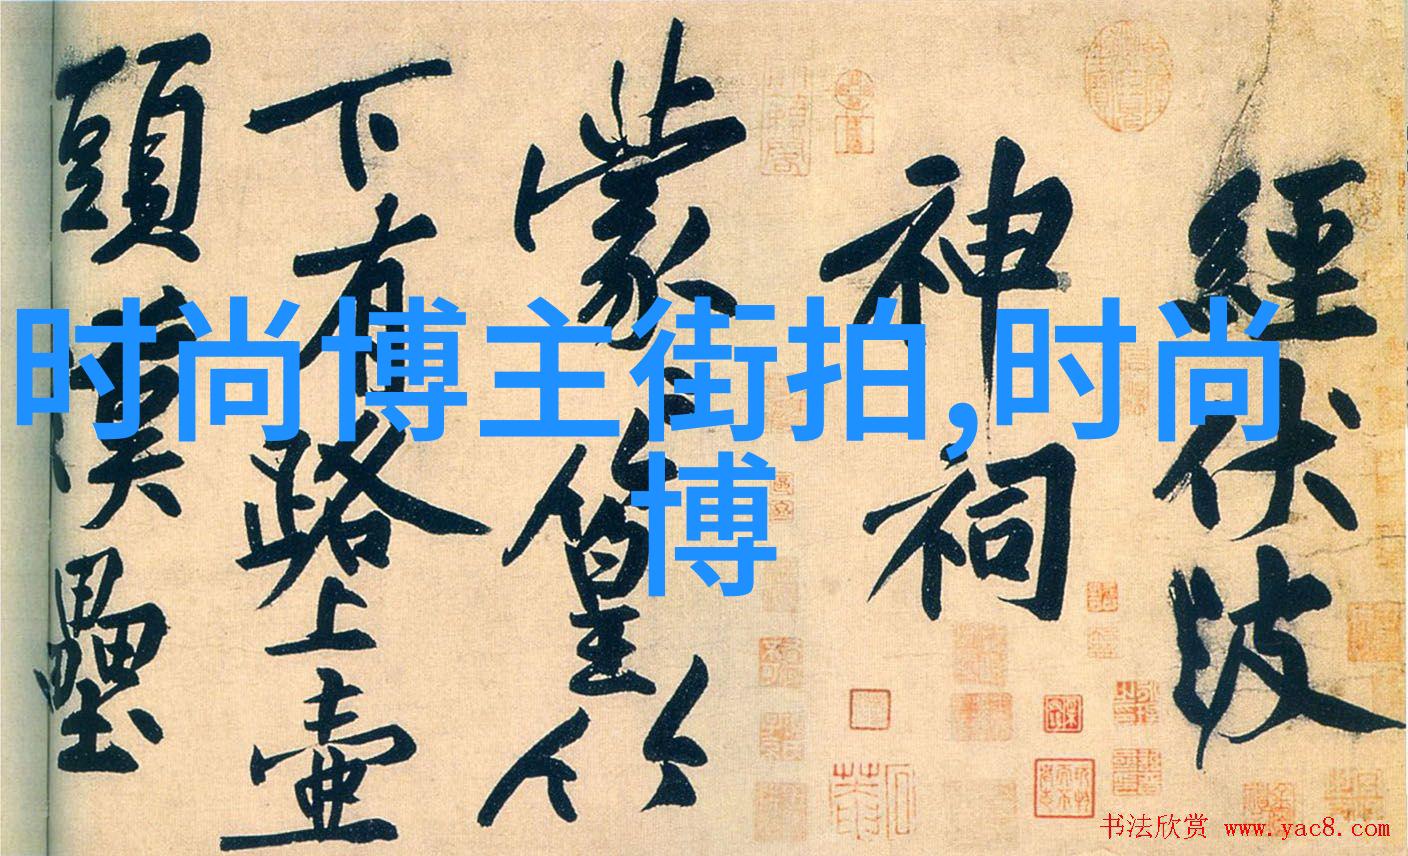 經伏波
神祠
蒙篁竹
下有路上壺
頭漢壘
时尚博主街拍,时尚
博
书法欣赏 www.yac8.com